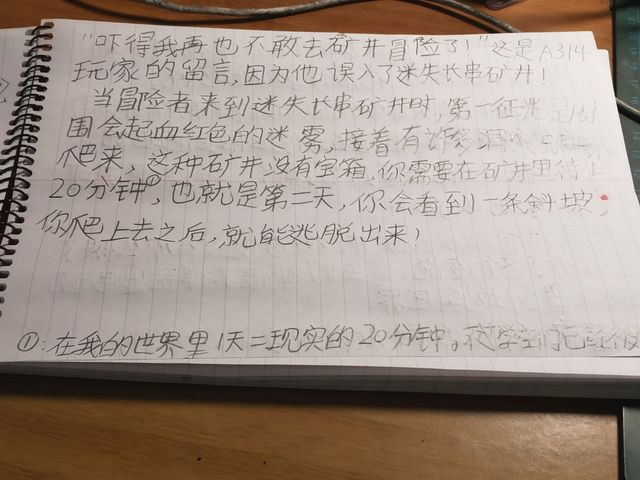 "吓得我再也不敢去矿井冒险了!"这是A314
玩家的留言,因为他误入了迷失长串矿井!
当冒险者来到迷失长串矿井时,第一征兆是周
围会起血红色的迷雾,接着有许多洞
爬来,这种矿井没有宝箱,你需要在矿井里待上
20分钟①,也就是第二天,你会看到一条斜坡,
你爬上去之后,就能逃脱出来!
①:在我的世界里1天=现实的20分钟。